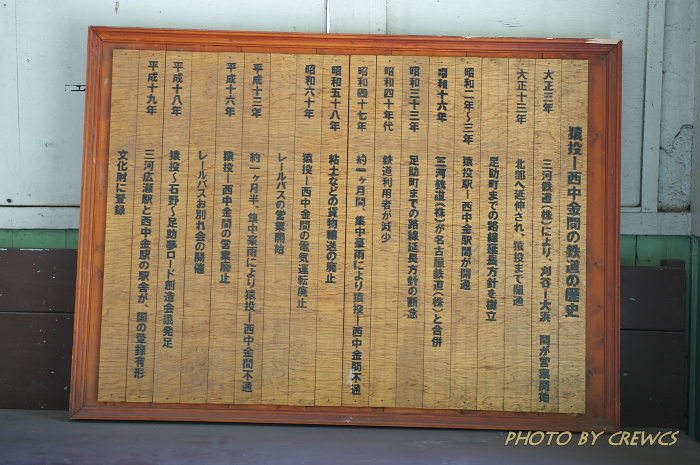 猿投ー西中金間の鉄道の歴史
大正三年 三河鉄道（株）により、刈谷ー大浜 間が営業開始
大正十三年 北部へ延伸され、猿投まで開通
足助町までの路線延長方針を樹立
昭和二年～三年 猿投駅ー西中金駅間が開通
昭和十六年 三河鉄道（株）が名古屋鉄道（株）と合併
昭和三十三年 足助町までの路線延長方針の断念
昭和四十年代 鉄道利用者が減少
昭和四十七年 約一ヶ月間、集中豪雨により猿投ー西中金間不通
昭和五十八年 粘土などの貨物輸送の廃止
昭和六十年 猿投ー西中金間の電気運転廃止
レールバスの営業開始
平成十三年 約一ヶ月半、集中豪雨により猿投ー西中金間不通
平成十六年 猿投ー西中金間の営業廃止
レールバスお別れ会の開催
平成十八年 猿投～石野～足助夢ロード創造会議発足
平成十九年 三河広瀬駅と西中金駅の駅舎が、国の登録有形
文化財に登録
PHOTO BY CREWCS